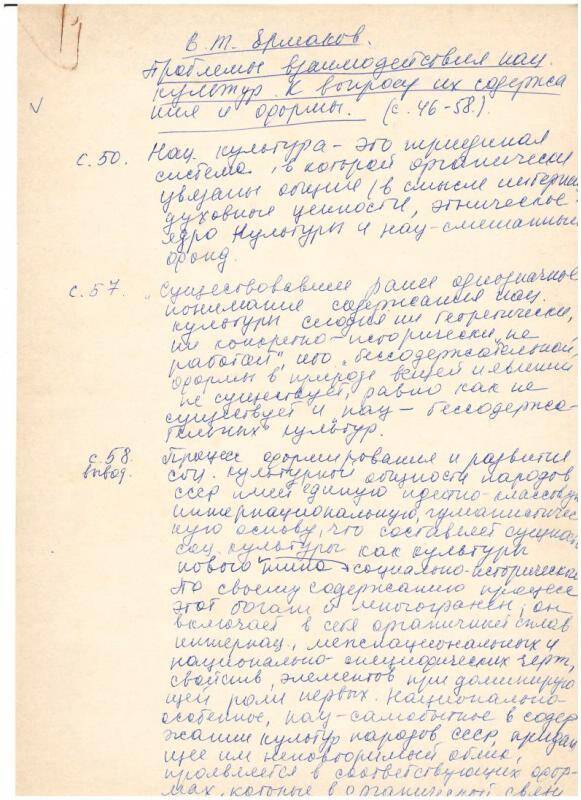 В. Т. Ермаков.
Проблемы взаимодействия нац.
культур. К вопросу их содержа
ния и формы. (с. 46-58.).
с. 50. Нац. культура - это триединая
система, в которой органически
увязаны общие (в смысле интернац
духовные ценности, этническое
ядро культуры и нац-смешанный
фонд.
с. 57. "Существовавшее ранее однозначное
понимание содержания нац.
культуры сегодня ни теоретически,
ни конкретно-исторически "не
работает", ибо "бессодержательной
формы в природе вещей и явлений
не существует, равно как не
существует и нац - бессодержа-
тельных" культур.
с. 58. Процесс формирования и развития
вывод. соц. культурной общности народов
СССР имеет единую идейно-классовую
интернациональную, гуманистичес
кую основу, что составляет сущность
соц. культуры как культуры
нового типа социально-исторической
По своему содержанию процесс
этот богат и многогранен; он
включает в себя органичный сплав
интернац., межнациональных и
национально-специфических черт,
свойств, элементов при доминирую
щей роли первых. Национально-
особенное, нац-самобытное в содер
жании культур народов СССР, придаю
щее им неповторимый облик,
проявляется в соответствующих фор-
мах, которые в органической связи